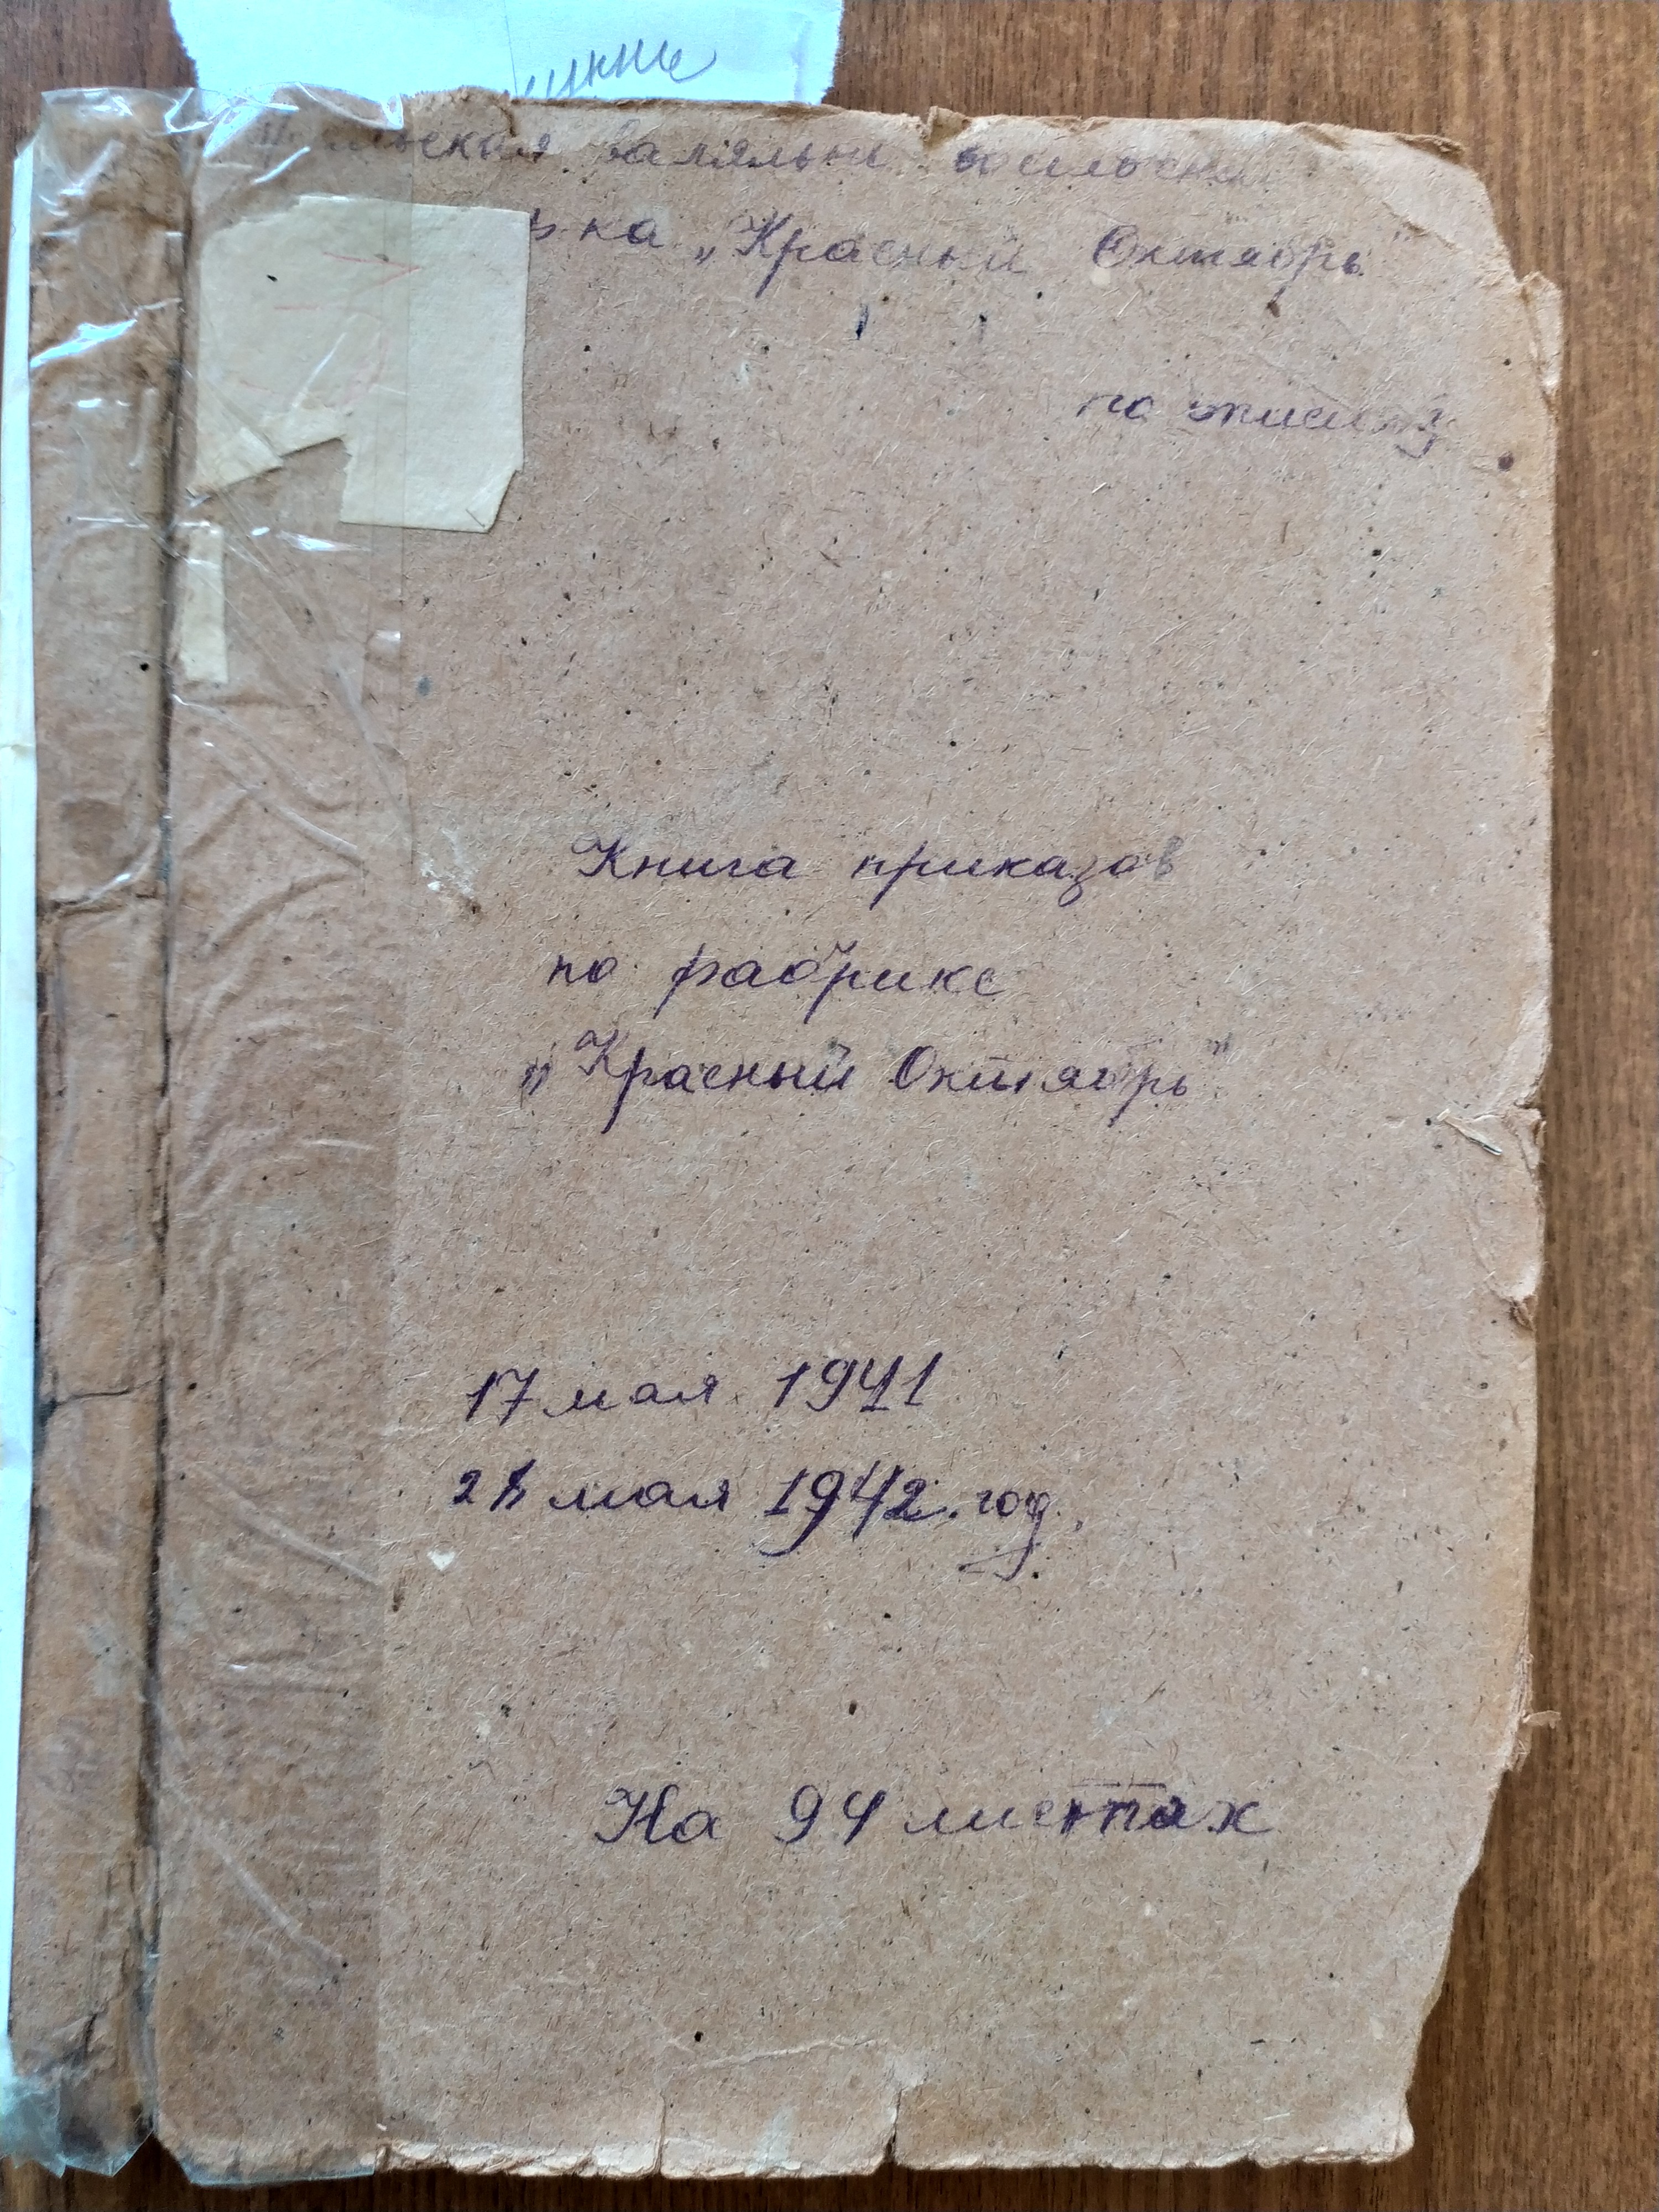 валяльно войлочная
"Красный Октябрь"
по описи
Книга приказов
по фабрике
„Красный Октябрь"
17 мая 1941
мая 1942. год.
На 94 листах